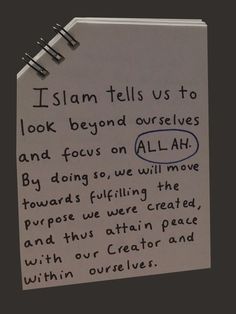 Islam tells us to
look beyond ourselves
and focus on ALLAH.
By doing so, we will move
towards fulfilling the
purpose we were created,
and thus attain peace
with our Creator and
within ourselves.